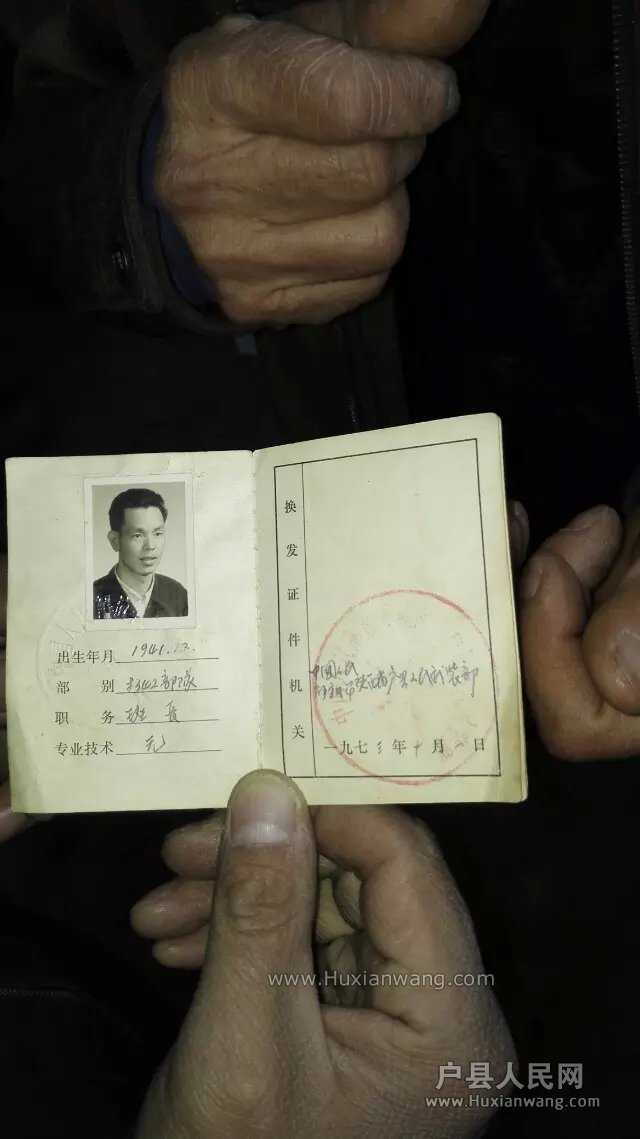 出生年月 1941.12.
部 别 部队
职 务 班长
专业技术 无
换发证件机关
中国人民
解放军陕西省户县人民武装部
一九七三年十月一日
www.Huxianwang.com
户县人民网
www.Huxianwang.com